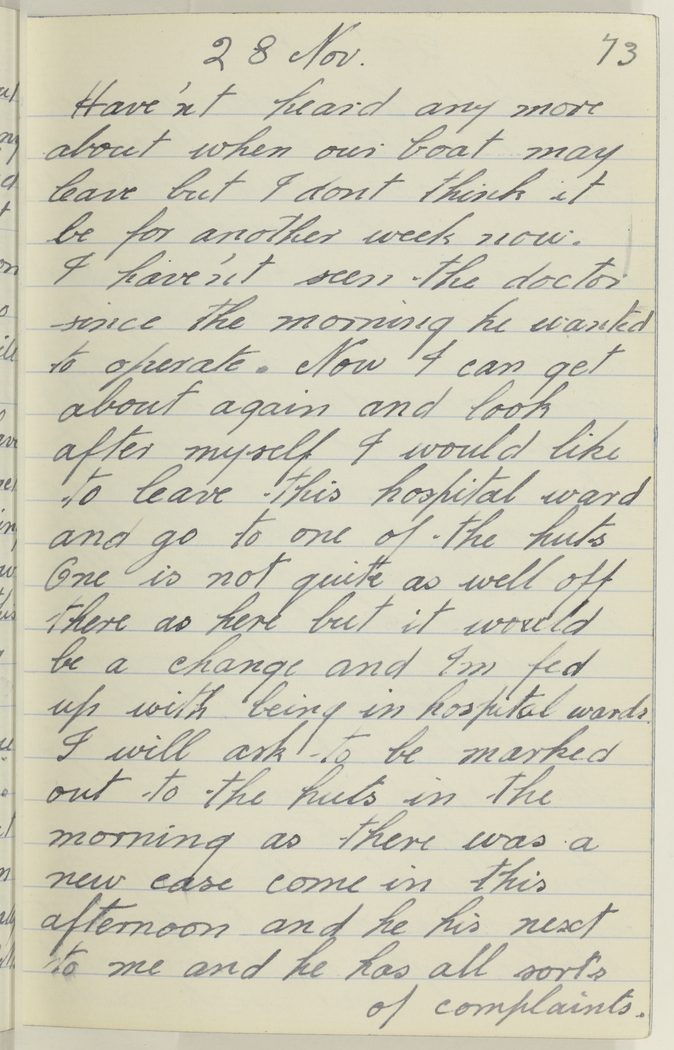 28 Nov. 73
Have'nt heard any more
about when our boat may
leave but I dont think it
be for another week now.
I have'nt seen the doctor
since the morning he wanted
to operate. Now I can get
about again and look
after myself I would like
to leave this hospital ward
and go to one of the huts
One is not quite as well off
there as here but it would
be a change and I'm fed
up with being in hospital wards.
I will ask to be marked
out to the huts in the
morning as there was a
new case come in this
afternoon and he his next
to me and he has all sorts
of complaints.